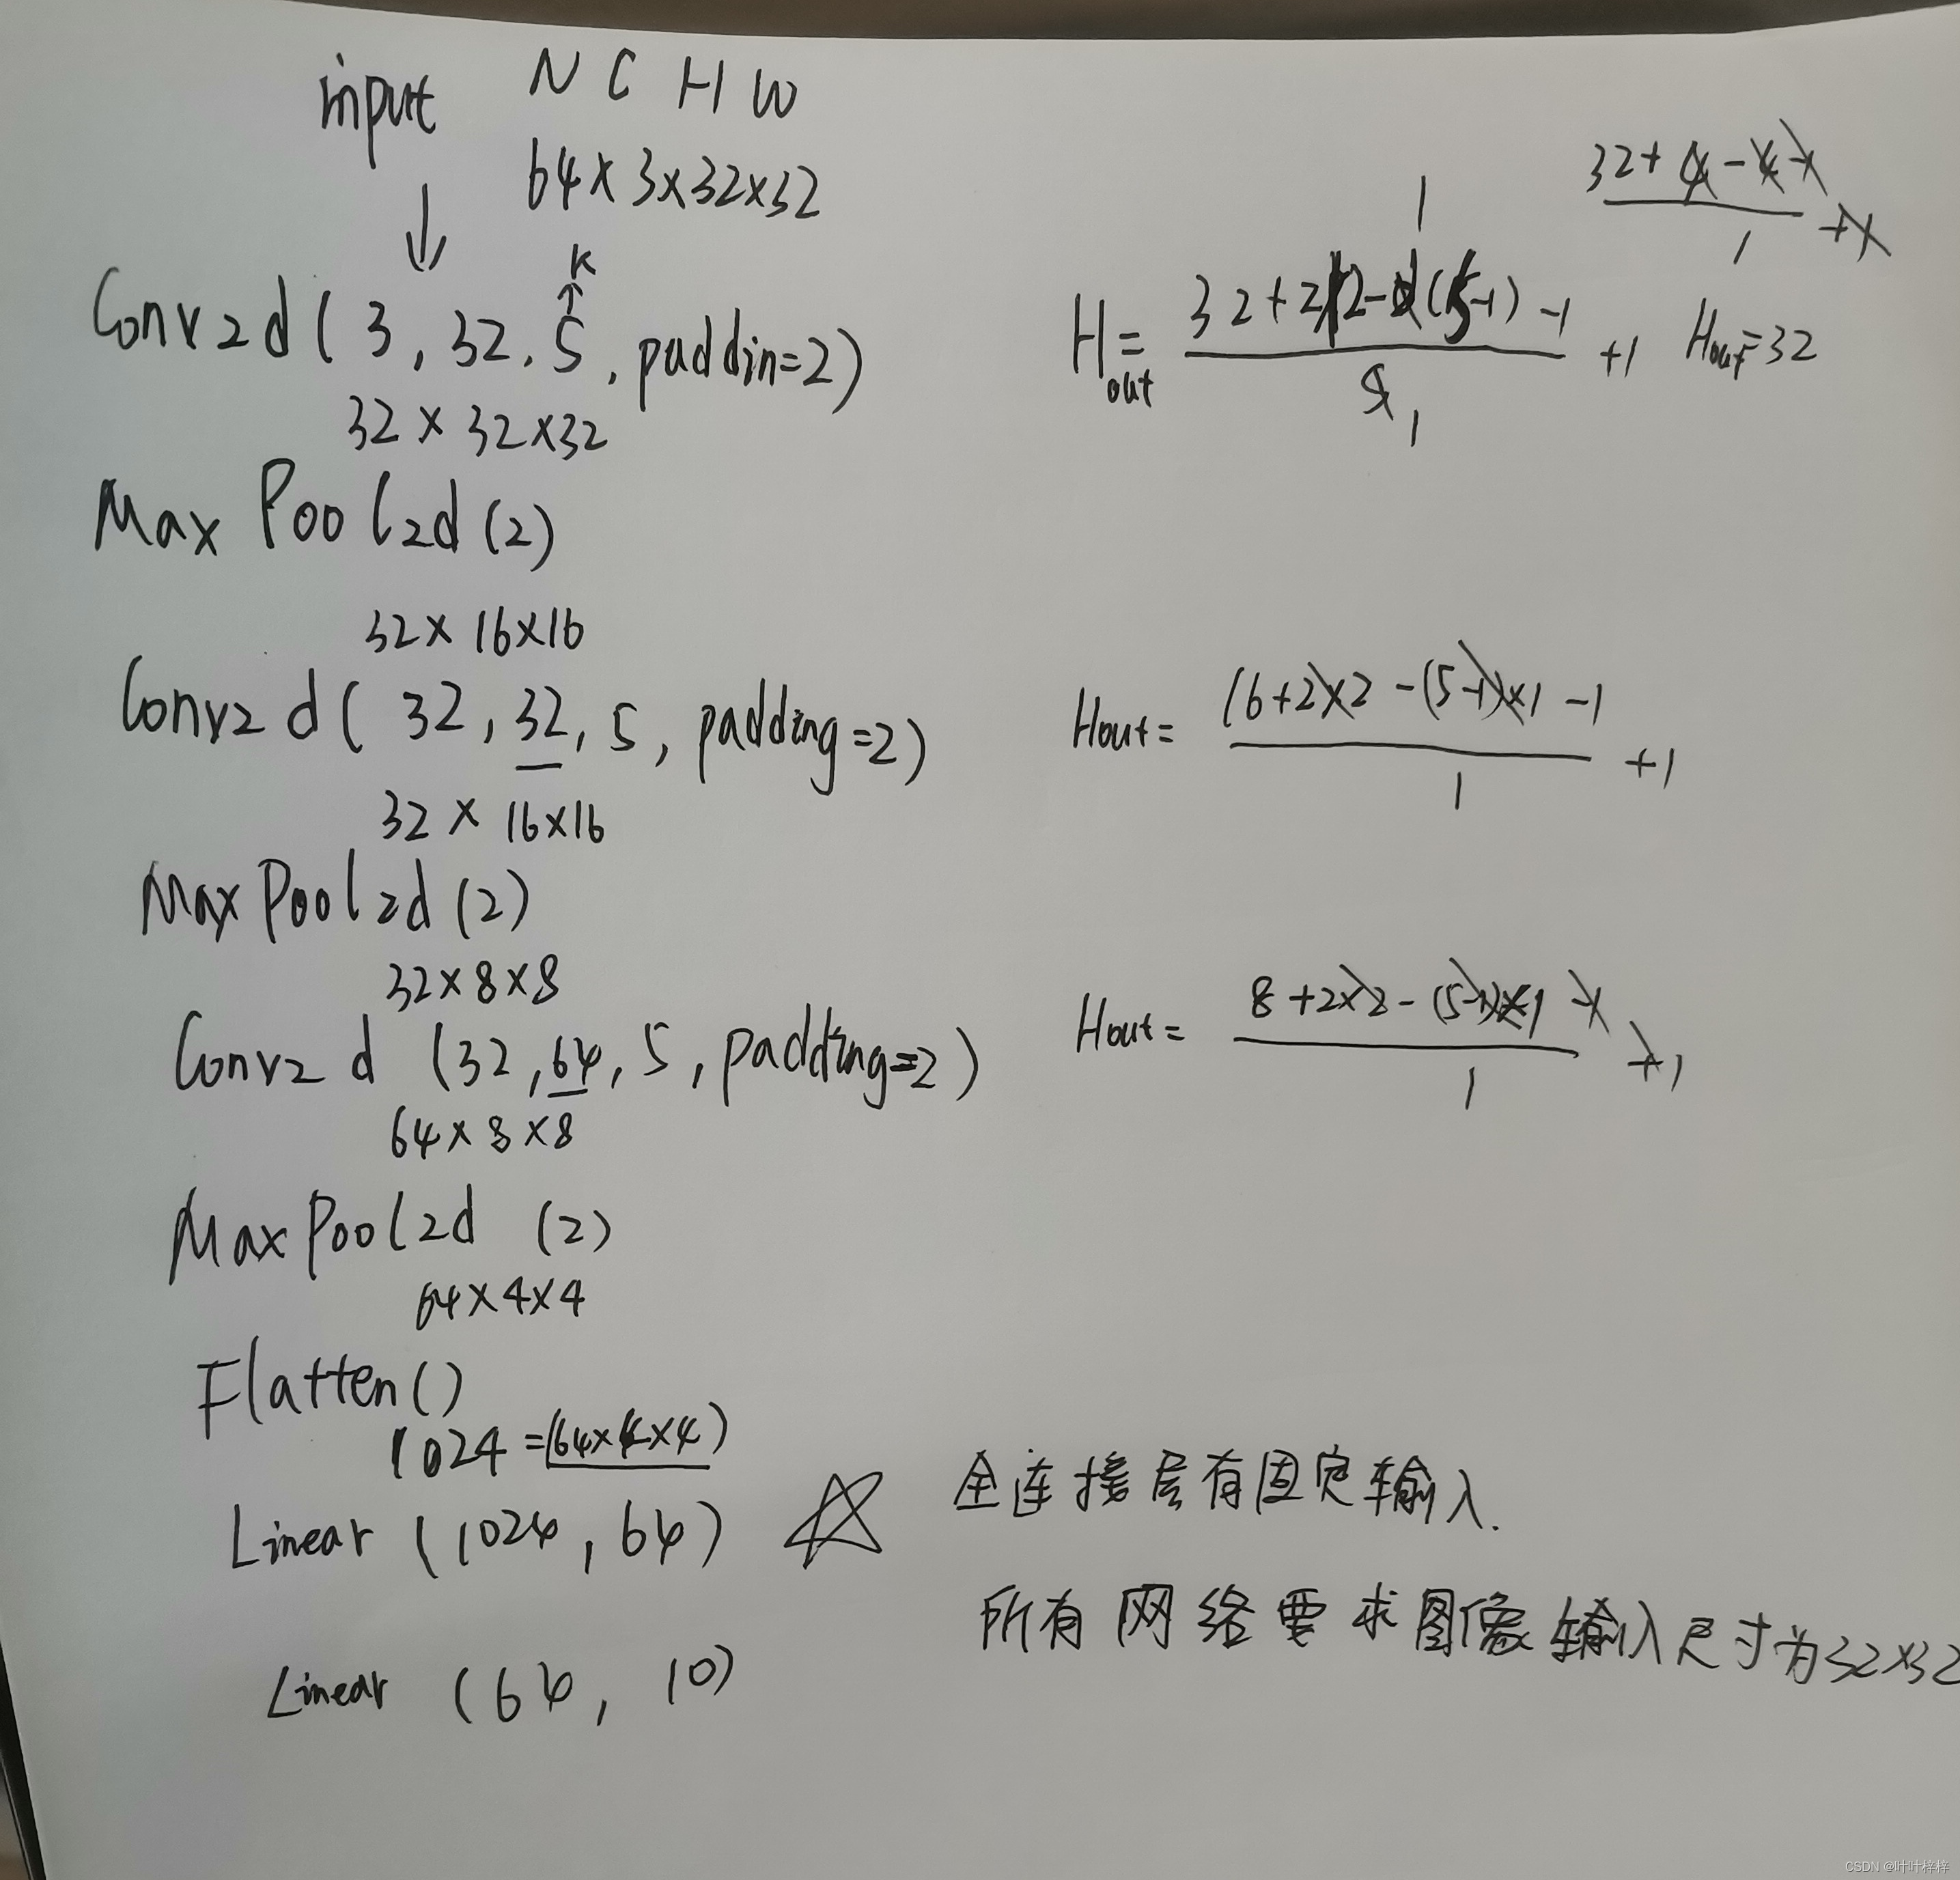 input N C H W
64×3×32×32
K
Conv2d(3, 32, 5, paddin=2)
32×32×32
32+4-4-1
1
+1
1
Hout= 32+2×2-(5-1)-1
1
+1 Hout=32
MaxPool2d(2)
32×16×16
Conv2d(32, 32, 5, padding=2)
Hout= 16+2×2-(5-1)×1-1
1
+1
32×16×16
MaxPool2d(2)
32×8×8
Conv2d(32, 64, 5, padding=2)
Hout= 8+2×2-(5-1)×1-1
1
+1
64×8×8
MaxPool2d(2)
64×4×4
Flatten()
1024=(64×4×4)
Linear(1024, 64) 全连接层有固定输入.
所有网络要求图像输入尺寸为32×32
Linear(64, 10)
CSDN @叶叶梓梓